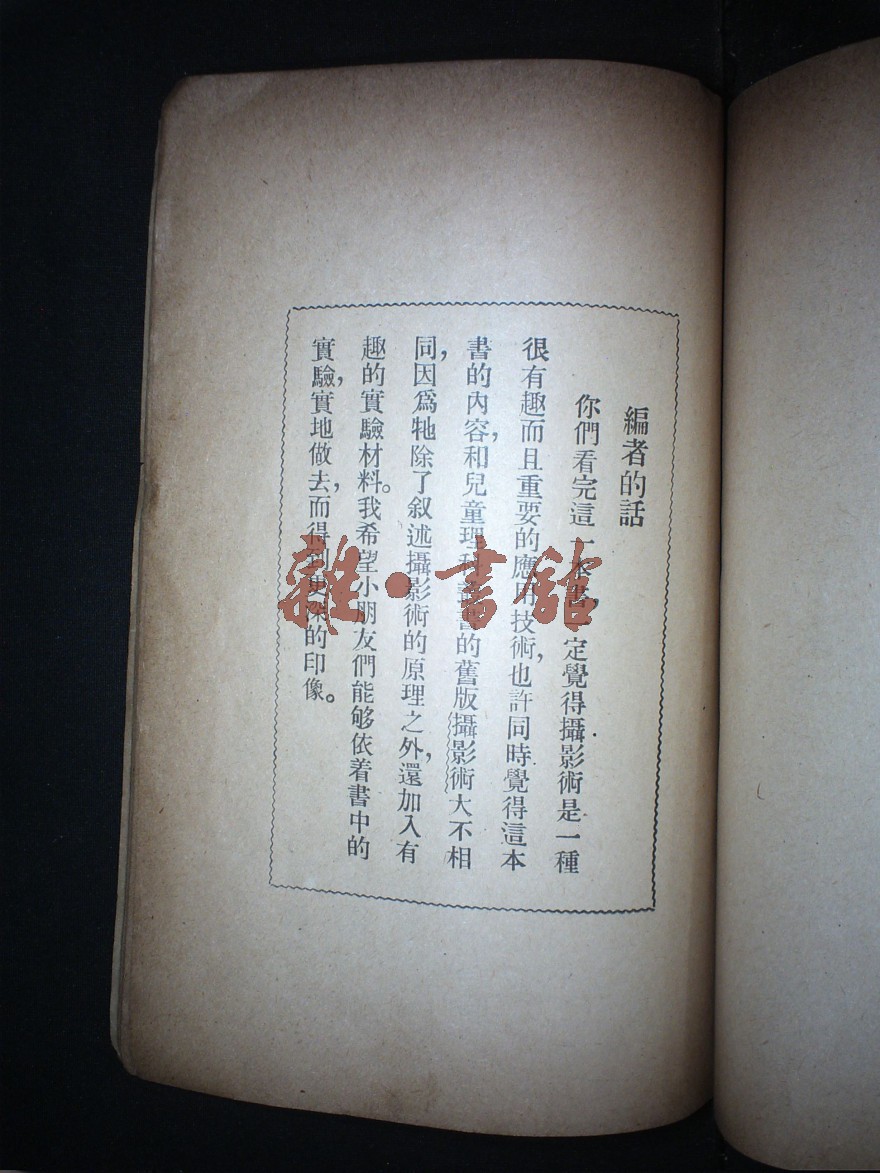 編者的話
你們看完這一本書，一定覺得攝影術是一種
很有趣而且重要的應用技術，也許同時覺得這本
書的內容，和兒童理科叢書的舊版攝影術大不相
同，因爲牠除了叙述攝影術的原理之外，還加入有
趣的實驗材料。我希望小朋友們能够依着書中的
實驗，實地做去，而得到更深的印像。
雜·書館